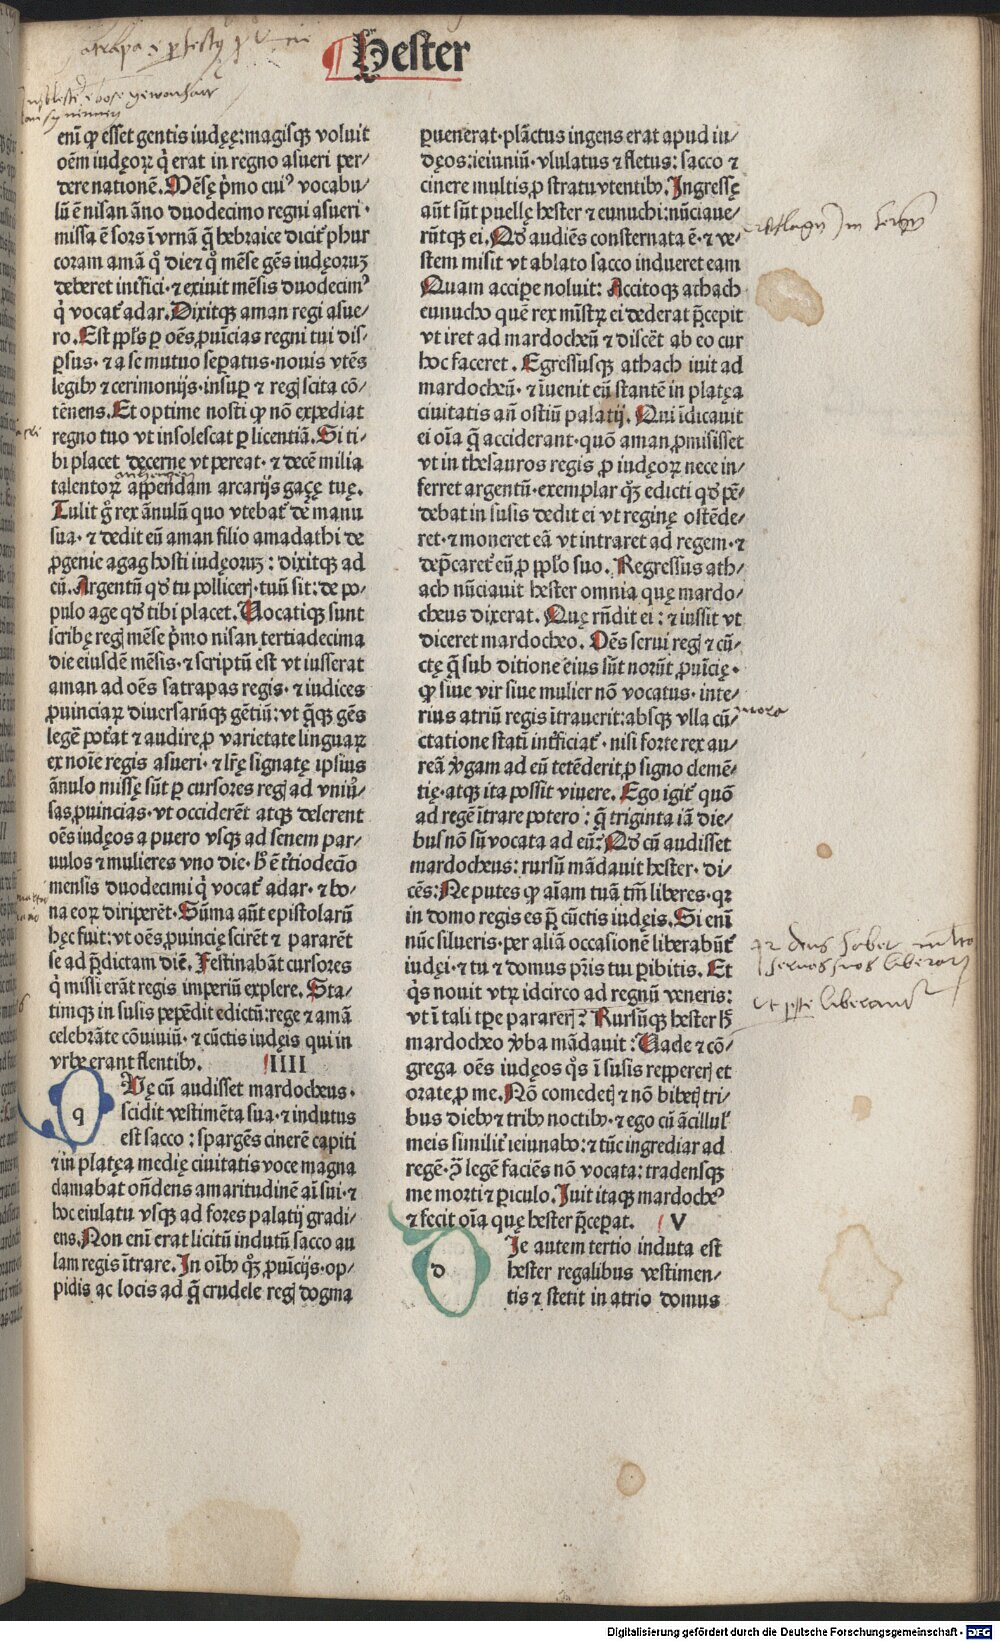 Hester
eni͂ ꝙ esset gentis iudęę: magisqꝫ voluit
oe͂m iudęoꝝ q̇ erat in regno asueri per⸗
dere natione͂. Me͂sę p̍mo cuiꝰ vocabu⸗
lu͂ e͂ nisan a͂no duodecimo regni asueri·
missa e͂ sors i͂ vrna͂ q̄ hebraice dicit̃ phur
coram ama͂ qͦ die ⁊ qͦ me͂se ge͂s iudęoruꝫ
deberet int̃fici·⁊ exiuit me͂sis duodecimꝰ
q̇ vocat̃ adar. Dixitqꝫ aman regi asue⸗
ro. Est ppl̃s ꝑ oe͂s ꝓui͂cias regni tui dis⸗
ꝑsus·⁊ a se mutuo seꝑatus·nouis vte͂s
legibꝫ ⁊ cerimonijs·insuꝑ ⁊ regꝭ scita co͂⸗
te͂nens. Et optime nosti ꝙ no͂ expediat
regno tuo vt insolescat ꝑ licentia͂. Si ti⸗
bi placet decerne vt pereat·⁊ dece͂ milia
talentoꝝ appendam arcarijs gaçę tuę.
Tulit g̊ rex a͂nulu͂ quo vtebat̃ de manu
sua·⁊ dedit eu͂ aman filio amadathi de
ꝓgenie agag hosti iudęoruꝫ: dixitqꝫ ad
eu͂. Argentu͂ qd̓ tu pollicerꝭ·tuu͂ sit: de po⸗
pulo age qd̓ tibi placet. Uocatiqꝫ sunt
scribę regꝭ me͂se p̍mo nisan tertiadecima
die eiusde͂ me͂sis·⁊ scriptu͂ est vt iusserat
aman ad oe͂s satrapas regis·⁊ iudices
ꝓuinciaꝝ diuersaru͂qꝫ ge͂tiu͂: vt q̄qꝫ ge͂s
lege͂ pot̃at ⁊ audire ꝓ varietate linguaꝝ
ex noi͂e regis asueri·⁊ lr̃ę signatę ipsius
a͂nulo missę su͂t ꝑ cursores regꝭ ad vniu̓⸗
sas ꝓuincias·vt occidere͂t atqꝫ delerent
oe͂s iudęos a puero vsqꝫ ad senem par⸗
uulos ⁊ mulieres vno die·h̓ e͂ t̃tiodeci͂o
mensis duodecimi q̇ vocat̃ adar·⁊ bo⸗
na eoꝝ diripere͂t. Su͂ma au͂t epistolaru͂
hęc fuit: vt oe͂s ꝓuincię scire͂t ⁊ parare͂t
se ad p̄dictam die͂. Festinaba͂t cursores
q̇ missi era͂t regis imperiu͂ explere. Sta⸗
timqꝫ in susis pepe͂dit edictu͂: rege ⁊ ama͂
celebra͂te co͂uiuiu͂·⁊ cu͂ctis iudęis qui in
vrbe erant flentibꝫ. IIII
q Vę cu͂ audisset mardocheus·
scidit vestime͂ta sua·⁊ indutus
est sacco: sparge͂s cinere͂ capiti
⁊ in platęa medię ciuitatis voce magna
clamabat on͂dens amaritudine͂ ai͂ sui·⁊
hoc eiulatu vsqꝫ ad fores palatij gradi⸗
ens. Non eni͂ erat licitu͂ indutu͂ sacco au
lam regis i͂trare. In oi͂bꝫ qͦꝫ ꝓui͂cijs·op⸗
pidis ac locis ad q̄ crudele regꝭ dogma
ꝑuenerat·pla͂ctus ingens erat apud iu⸗
dęos: ieiuniu͂·vlulatus ⁊ fletus: sacco ⁊
cinere multis ꝓ stratu vtentibꝫ. Ingressę
au͂t su͂t puellę hester ⁊ eunuchi: nu͂ciaue⸗
ru͂tqꝫ ei. Qd̓ audie͂s consternata e͂·⁊ ve⸗
stem misit vt ablato sacco indueret eam
Quam accipe noluit: Accitoqꝫ athach
eunucho que͂ rex mi͂stꝝ ei dederat p̄cepit
vt iret ad mardocheu͂ ⁊ disce͂t ab eo cur
hoc faceret. Egressusqꝫ athach iuit ad
mardocheu͂·⁊ i͂uenit eu͂ stante͂ in platęa
ciuitatis an͂ ostiu͂ palatij. Qui i͂dicauit
ei oi͂a q̄ acciderant·quo͂ aman ꝓmisisset
vt in thesauros regis ꝓ iudęoꝝ nece in⸗
ferret argentu͂·exemplar qͦꝫ edicti qd̓ pe͂⸗
debat in susis dedit ei vt reginę oste͂de⸗
ret·⁊ moneret ea͂ vt intraret ad regem·⁊
dep̄caret̃ eu͂ ꝓ ppl̃o suo. Regressus ath⸗
ach nu͂ciauit hester omnia quę mardo⸗
cheus dixerat. Quę rn͂dit ei: ⁊ iussit vt
diceret mardocheo. Oe͂s serui regꝭ ⁊ cu͂⸗
ctę q̄ sub ditione eius su͂t noru͂t ꝓui͂cię·
ꝙ siue vir siue mulier no͂ vocatus·inte⸗
rius atriu͂ regis i͂trauerit: absqꝫ vlla cu͂⸗ mora
ctatione stati͂ int̃ficiat̃·nisi forte rex au⸗
rea͂ v̓gam ad eu͂ tete͂derit ꝓ signo deme͂⸗
tię·atqꝫ ita possit viuere. Ego igit̃ quo͂
ad rege͂ i͂trare potero: q̄ triginta ia͂ die⸗
bus no͂ su͂ vocata ad eu͂? Qd̓ cu͂ audisset
mardocheus: rursu͂ ma͂dauit hester·di⸗
ce͂s: Ne putes ꝙ ai͂am tua͂ tm͂ liberes·qꝛ
in domo regis es p̄ cu͂ctis iudęis. Si eni͂
nu͂c silueris·per alia͂ occasione͂ liberabu͂t̃
iudęi·⁊ tu ⁊ domus pr̃is tui ꝑibitis. Et
q̇s nouit vtꝝ idcirco ad regnu͂ veneris:
vt i͂ tali tꝑe pararerꝭ? Rursu͂qꝫ hester h̓
mardocheo v̓ba ma͂dauit: Uade ⁊ co͂⸗
grega oe͂s iudęos qͦs i͂ susis repperерꝭ et
orate ꝓ me. No͂ comedetꝭ ⁊ no͂ bibetꝭ tri⸗
bus diebꝫ ⁊ tribꝫ noctibꝫ·⁊ ego cu͂ a͂cillul̓
meis similit̃ ieiunabo: ⁊ tu͂c ingrediar ad
rege͂·ꝯ̄ lege͂ facie͂s no͂ vocata: tradensqꝫ
me morti ⁊ ꝑiculo. Iuit itaqꝫ mardocheꝰ
⁊ fecit oi͂a quę hester p̄ceꝑat. V
d Ie autem tertio induta est
hester regalibus vestimen⸗
tis ⁊ stetit in atrio domus
Digitalisierung gefördert durch die Deutsche Forschungsgemeinschaft - DFG